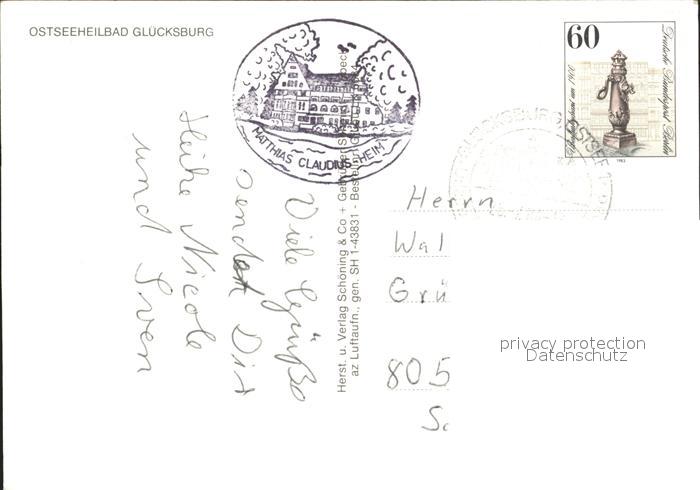 OSTSEEHEILBAD GLÜCKSBURG
MATTHIAS CLAUDIUS-HEIM
60
Deutsche Bundespost Berlin
1983
GLÜCKSBURG OSTSEE
Viele Grüße
sendet Dir
Heike Nicole
und Sven
Herst. u. Verlag Schöning & Co + Gebrüder
az Luftaufn., gen. SH 1-43831 - Bestell
Herrn
Wal
Grü
805
privacy protection
Datenschutz